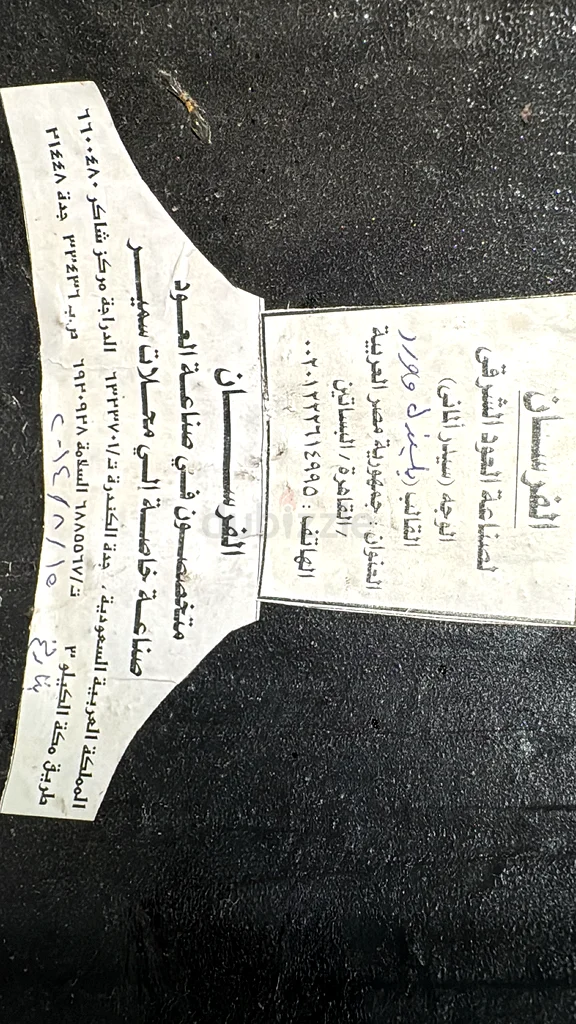 الفرسان
لصناعة العود الشرقى
الوجه (سيدر ألمانى)
القالب (
العنوان: جمهورية مصر العربية
القاهرة / البساتين /
الهاتف: ٠٠٢٠١٢٢٢٦١٤٩٩٥
الفرســــــان
متخصصون في صناعة العود
صناعة خاصة الي محلات سميـــر
المملكة العربية السعودية، جدة الكندرة ت/٦٣٢٣٧٠١ الدراجة مركز شاكر ٦٦٠٠٤٨٠
طريق مكة الكيلو ٣ ت/٦٨٨٥٥٦٧ السلامة ٦٩٢٠٩٢٨ ص.ب ٣٣٤٣٦ جدة ٢١٤٤٨
تاريخ ١٥/٨/٢٠١٤
dubizzle